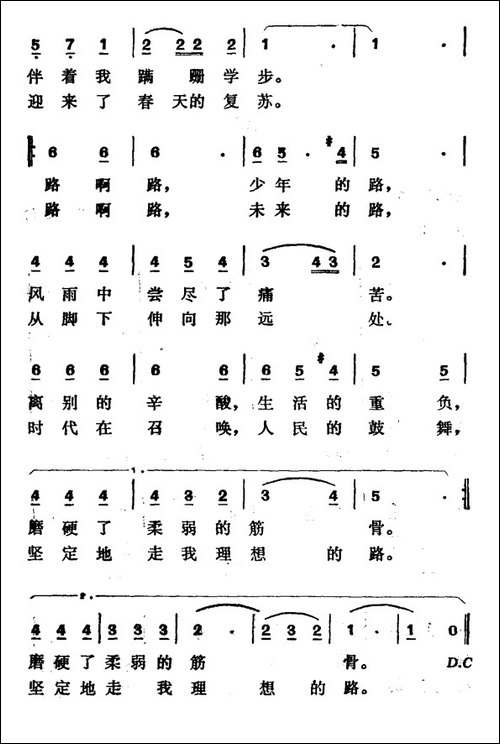 5 7 1 | 2 22 2 | 1 · | 1 ·
伴着我 蹒 跚学步。
迎来了 春 天的复苏。
6 6 | 6 · | 6 5 · #4 | 5 ·
路 啊 路， 少 年 的 路，
路 啊 路， 未 来 的 路，
4 4 4 | 4 5 4 | 3 4 3 | 2 ·
风雨中 尝尽了痛 苦。
从脚下 伸向那远 处。
6 6 6 | 6 6 | 6 5 #4 | 5 5
离别的辛 酸，生活的重 负，
时代在召 唤，人民的鼓 舞，
1.
4 4 4 | 4 3 2 | 3 4 | 5 ·
磨硬了 柔弱的筋 骨。
坚定地 走我理想 的路。
2.
4 4 4 | 3 3 3 | 2 · | 2 3 2 | 1 · | 1 0
磨硬了柔弱的筋 骨。 D.C
坚定地走 我理 想的路。